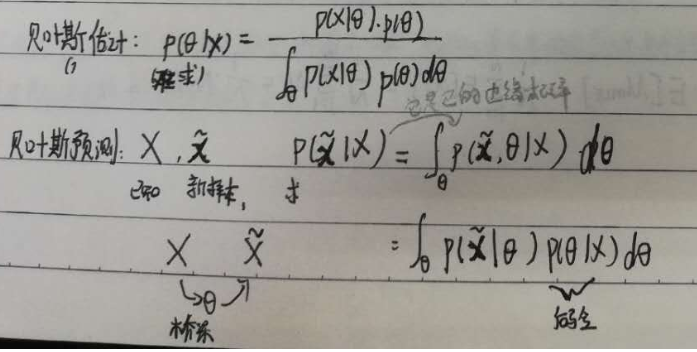 贝叶斯估计: P(θ|X) = P(X|θ)·P(θ) / ∫_θ P(X|θ) P(θ) dθ
(难求)
它是它的边缘概率
贝叶斯预测: X , x̃ P(x̃|X) = ∫_θ P(x̃,θ|X) dθ
已知 新样本, 求
X X̃ = ∫_θ P(x̃|θ) P(θ|X) dθ
↳θ↗
桥梁 后验